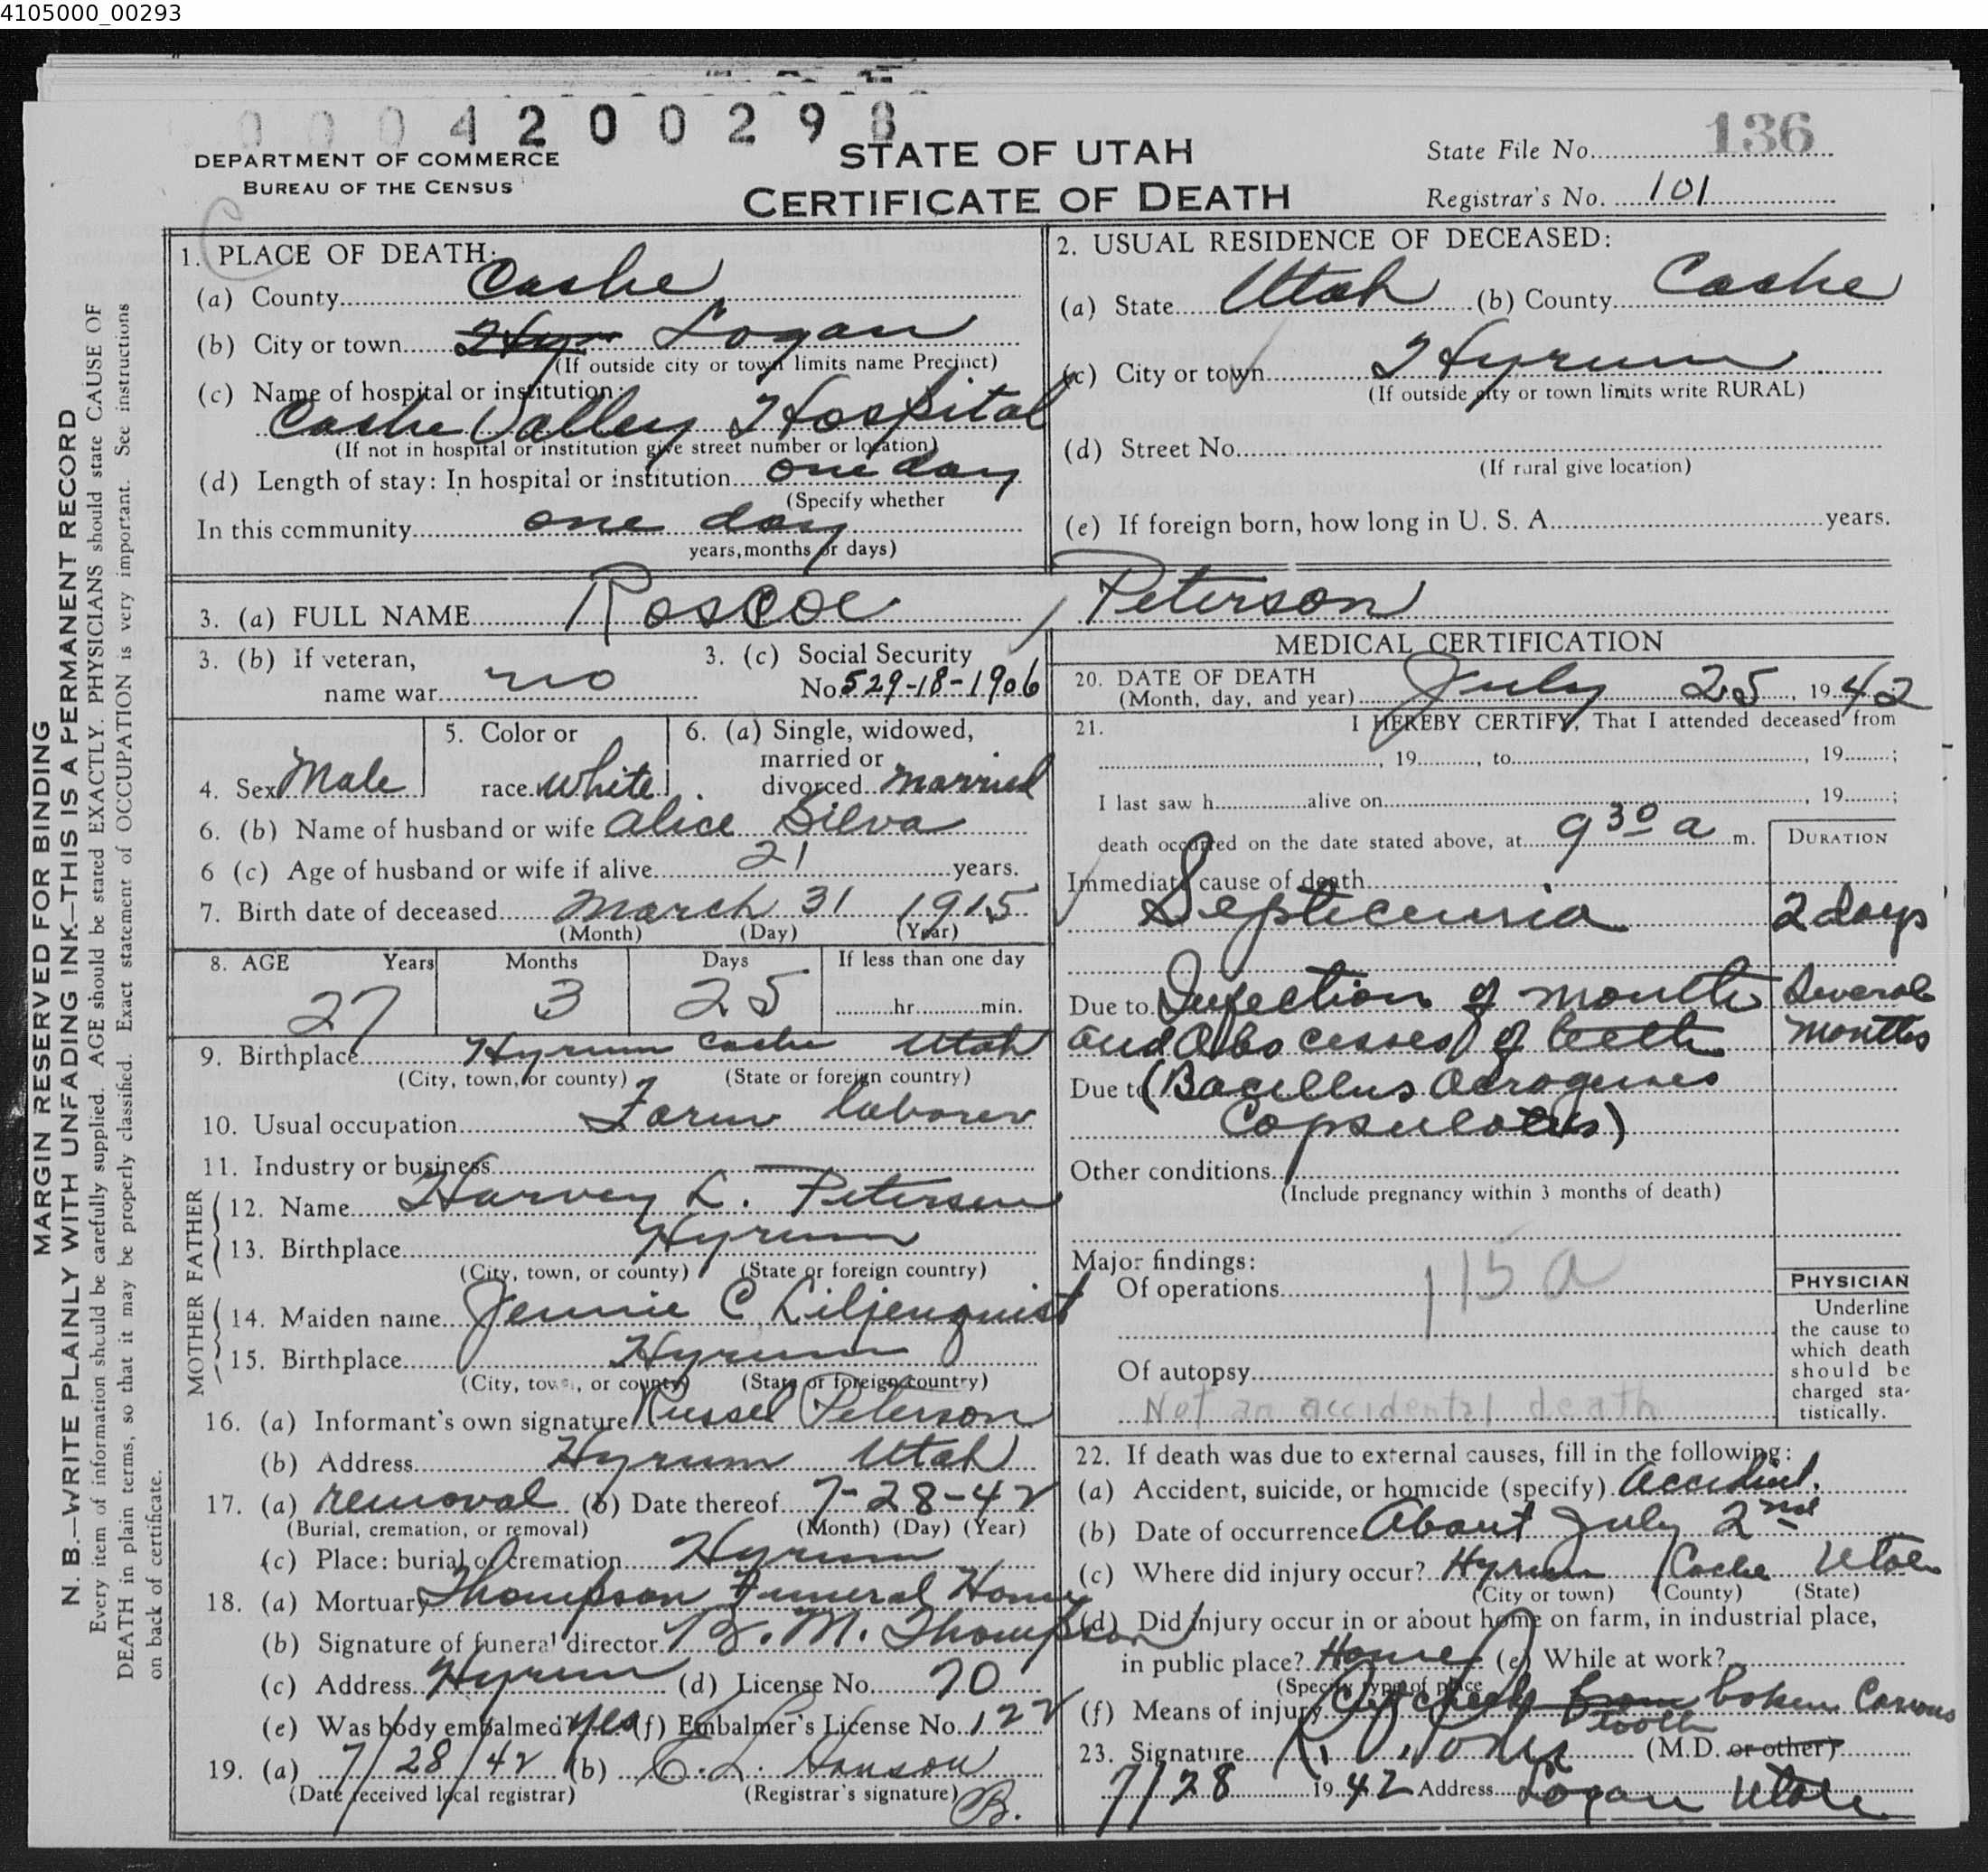 4105000_00293
0004200298
DEPARTMENT OF COMMERCE
BUREAU OF THE CENSUS
STATE OF UTAH
CERTIFICATE OF DEATH
State File No. 136
Registrar's No. 101
MARGIN RESERVED FOR BINDING
N. B.—WRITE PLAINLY WITH UNFADING INK—THIS IS A PERMANENT RECORD
Every item of information should be carefully supplied. AGE should be stated EXACTLY. PHYSICIANS should state CAUSE OF
DEATH in plain terms, so that it may be properly classified. Exact statement of OCCUPATION is very important. See instructions
on back of certificate.
1. PLACE OF DEATH:
(a) County Cache
(b) City or town Hyr Logan
(If outside city or town limits name Precinct)
(c) Name of hospital or institution:
Cache Valley Hospital
(If not in hospital or institution give street number or location)
(d) Length of stay: In hospital or institution one day
(Specify whether
In this community one day
years, months or days)
2. USUAL RESIDENCE OF DECEASED:
(a) State Utah (b) County Cache
(c) City or town Hyrum
(If outside city or town limits write RURAL)
(d) Street No.
(If rural give location)
(e) If foreign born, how long in U. S. A. years.
3. (a) FULL NAME Roscoe Peterson
3. (b) If veteran,
name war no
3. (c) Social Security
No. 529-18-1906
4. Sex Male
5. Color or
race White
6. (a) Single, widowed,
married or
divorced married
6. (b) Name of husband or wife Alice Silva
6 (c) Age of husband or wife if alive 21 years.
7. Birth date of deceased March 31 1915
(Month) (Day) (Year)
8. AGE Years Months Days If less than one day
27 3 25 hr. min.
9. Birthplace Hyrum Cache Utah
(City, town, or county) (State or foreign country)
10. Usual occupation Farm laborer
11. Industry or business —
FATHER
12. Name Harvey L. Petersen
13. Birthplace Hyrum
(City, town, or county) (State or foreign country)
MOTHER
14. Maiden name Jennie C Liljenquist
15. Birthplace Hyrum
(City, town, or county) (State or foreign country)
16. (a) Informant's own signature Russel Peterson
(b) Address Hyrum Utah
17. (a) removal (b) Date thereof 7-28-42
(Burial, cremation, or removal) (Month) (Day) (Year)
(c) Place: burial or cremation Hyrum
18. (a) Mortuary Thompson Funeral Home
(b) Signature of funeral director B. M. Thompson
(c) Address Hyrum (d) License No. 70
(e) Was body embalmed? Yes (f) Embalmer's License No. 122
19. (a) 7/28/42 (b) C. L. Hanson
(Date received local registrar) (Registrar's signature) B.
MEDICAL CERTIFICATION
20. DATE OF DEATH
(Month, day, and year) July 25, 1942
21. I HEREBY CERTIFY, That I attended deceased from
, 19 , to , 19 ;
I last saw h alive on , 19 ;
death occurred on the date stated above, at 9 30 a m.
DURATION
Immediate cause of death
Septicemia 2 days
Due to Infection of mouth Several
and Abscesses of teeth months
Due to (Bacillus Aerogenes
Capsulatus)
Other conditions
(Include pregnancy within 3 months of death)
Major findings:
Of operations 115a
Of autopsy
Not an accidental death
PHYSICIAN
Underline
the cause to
which death
should be
charged sta-
tistically.
22. If death was due to external causes, fill in the following:
(a) Accident, suicide, or homicide (specify) Accident.
(b) Date of occurrence About July 2nd
(c) Where did injury occur? Hyrum Cache Utah
(City or town) (County) (State)
(d) Did injury occur in or about home on farm, in industrial place,
in public place? Home (e) While at work?
(Specify type of place
(f) Means of injury Cut cheek from
tooth
23. Signature (M.D. or other)
7/28 1942 Address Logan Utah